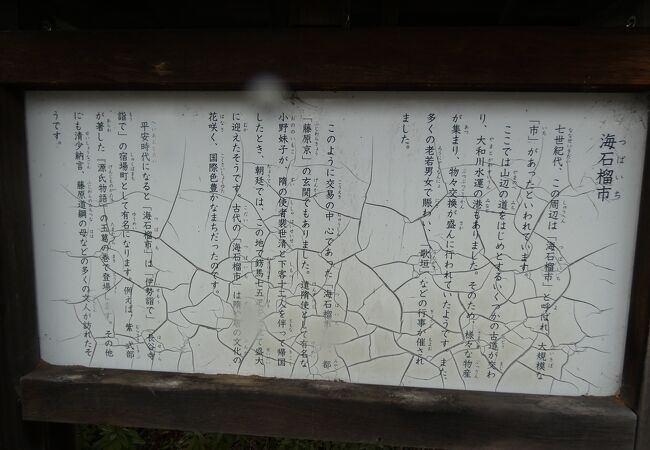 海石榴市
七世紀代、この周辺は「海石榴市」と呼ばれ、大規模な
「市」があったといわれています。
ここでは山辺の道をはじめとするいくつかの古道が交わ
り、大和川水運の港もありました。そのため、様々な物産
が集まり、物々交換が盛んに行われていたようです。また、
多くの老若男女で賑わい、「歌垣」などの行事が催され
ました。
このように交易の中心であった「海石榴 都
「藤原京」の玄関でもありました。遣隋使として有名な
小野妹子が、隋の使者裴世清と下客十二人を伴って帰国
したとき、朝廷では、この地で飾馬七五 盛大
に迎えたそうです。古代の「海石榴市」は の文化の
花咲く、国際色豊かなまちだったのです。
平安時代になると「海石榴市」は「伊勢詣で」「長谷寺
詣で」の宿場町として有名になります。例えば、紫式部
が著した『源氏物語』の玉葛の巻で登場 す。その他
にも清少納言、藤原道綱の母などの多くの文人が訪れたそ
うです。